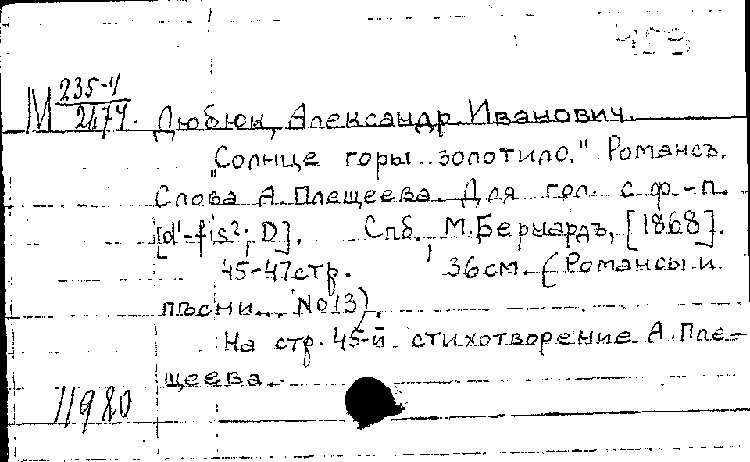 459
М 235-4
2474. Дюбюк, Александр Иванович.
„Солнце горы золотило." Романсъ.
Слова А. Плещеева. Для гол. с ф.-п.
[d'-fis²; D]. Спб., М. Бернардъ, [1868].
45-47 стр. 36 см. (Романсы и
пѣсни... №13).
На стр. 45-й стихотворение А. Пле-
щеева.
11980